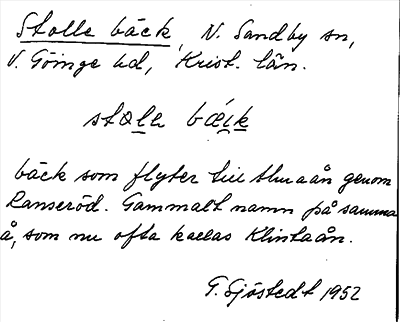 Stolle bäck, N. Sandby sn,
V. Göinge hd, Krist. län.
stɑlə bǽi̯k
bäck som flyter till Almaån genom
Ranseröd. Gammalt namn på samma
å, som nu ofta kallas Klintaån.
G. Sjöstedt 1952